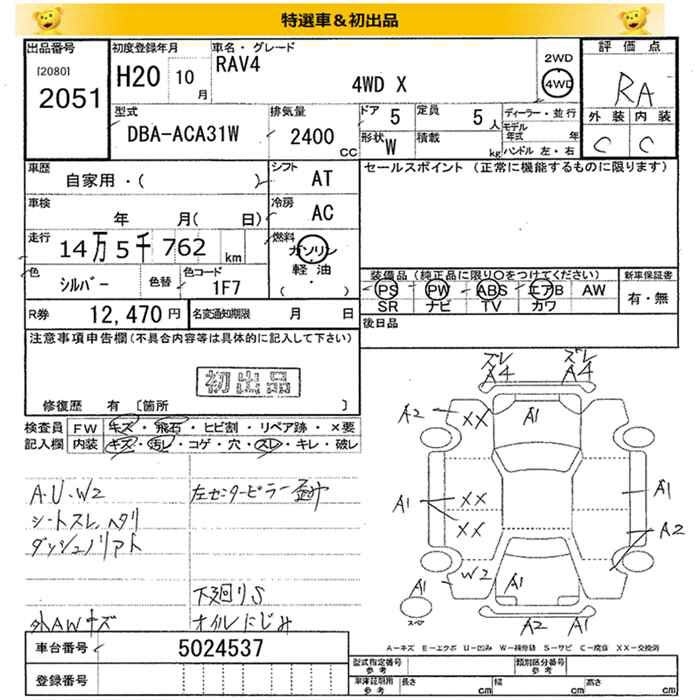 特選車＆初出品
出品番号 初度登録年月 車名・グレード 2WD 評価点
[2080] H20 10月 RAV4 4WD X 4WD RA
2051
型式 排気量 ドア 5 定員 5人 ディーラー・並行 外装 内装
DBA-ACA31W 2400CC 形状 W 積載 kg モデル年式 年 C C
ハンドル 左・右
車歴 自家用・( ) シフト AT セールスポイント (正常に機能するものに限ります)
車検 年 月( 日) 冷房 AC
走行 14万5千762km 燃料 ガソリン 軽油 ( ・ )
色 シルバー 色替 色コード 1F7 装備品 (純正品に限り○をつけてください) 新車保証書
PS PW ABS エアB AW 有・無
SR ナビ TV カワ
R券 12,470円 名変通知期限 月 日 後日品
注意事項申告欄 (不具合内容等は具体的に記入して下さい)
初出品
修復歴 有 [箇所 ]
ズレ ズレ
A4 A4
検査員 FW キズ・飛石・ヒビ割・リペア跡・×要
記入欄 内装 キズ・汚レ・コゲ・穴・スレ・キレ・破レ
A2 XX A1
A.U.W2 左センターピラー
シートスレ ヘタリ
ダッシュノリアト
A1 XX A1
XX A2
下廻りS
外AWキズ オイルにじみ
A1 W2 A1
スペア
A2 A1
車台番号 5024537
A－キズ E－エクボ U－凹み W－補修跡 S－サビ C－腐食 XX－交換済
登録番号
型式指定番号 参考 類別区分番号 参考
車庫証明用 参考 長さ cm 幅 cm 高さ cm